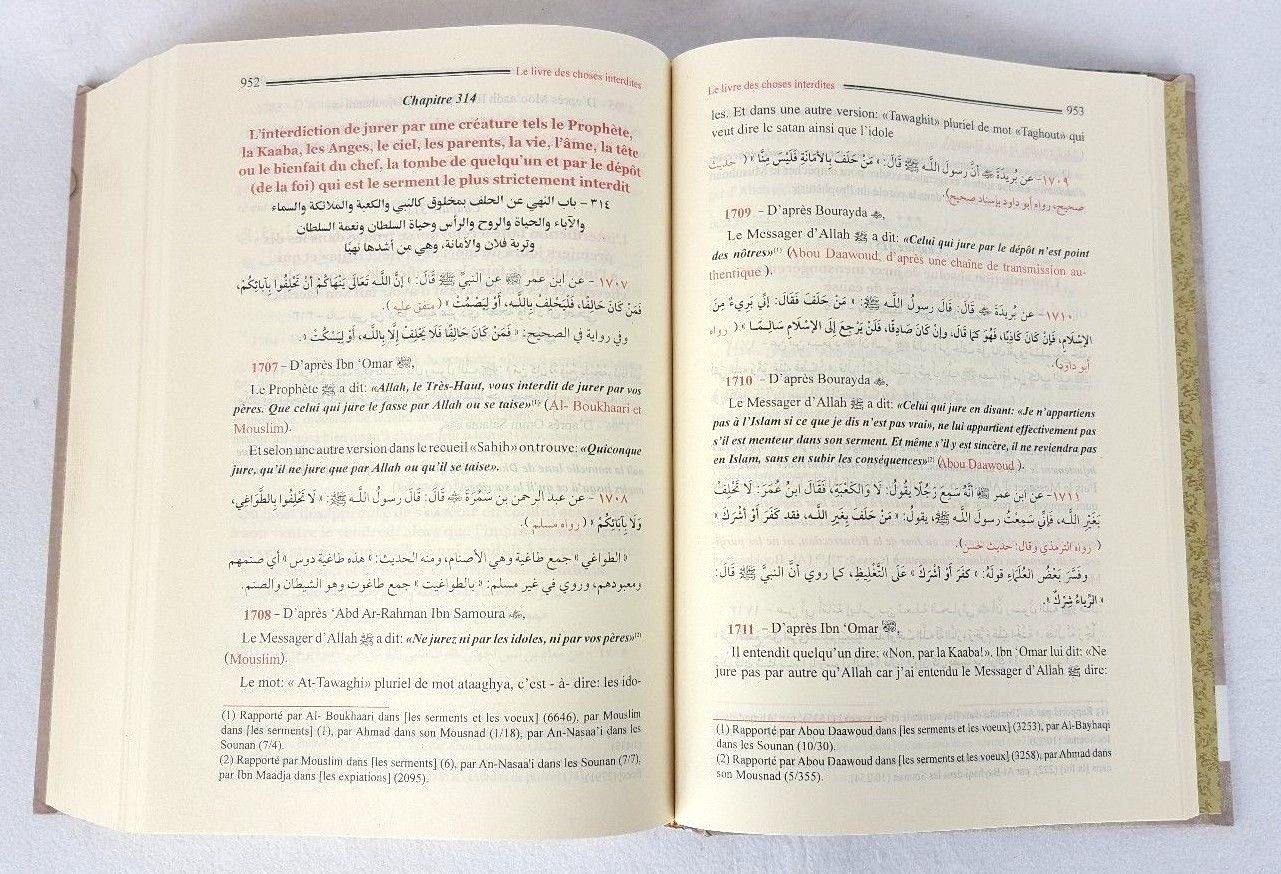 952 Le livre des choses interdites
Chapitre 314
L'interdiction de jurer par une créature tels le Prophète,
la Kaaba, les Anges, le ciel, les parents, la vie, l'âme, la tête
ou le bienfait du chef, la tombe de quelqu'un et par le dépôt
(de la foi) qui est le serment le plus strictement interdit
٣١٤ - باب النهي عن الحلف بمخلوق كالنبي والكعبة والملائكة والسماء
والآباء والحياة والروح والرأس وحياة السلطان ونعمة السلطان
وتربة فلان والأمانة، وهي من أشدها نهيًا
١٧٠٧ - عن ابن عمر ﷺ عن النبيِّ ﷺ قَالَ: «إنَّ اللَّـهَ تَعَالَى يَنْهَاكُمْ أنْ تَحْلِفُوا بِآبَائِكُمْ،
فَمَنْ كَانَ حَالِفًا، فَلْيَحْلِفْ بِاللَّـهِ، أَوْ لِيَصْمُتْ» (متفق عليه).
وفي رواية في الصحيح: «فَمَنْ كَانَ حَالِفًا فَلَا يَحْلِفْ إِلَّا بِاللَّـهِ، أَوْ لِيَسْكُتْ».
1707 - D'après Ibn 'Omar,
Le Prophète ﷺ a dit: «Allah, le Très-Haut, vous interdit de jurer par vos
pères. Que celui qui jure le fasse par Allah ou se taise»(1) (Al- Boukhaari et
Mouslim).
Et selon une autre version dans le recueil «Sahih» on trouve: «Quiconque
jure, qu'il ne jure que par Allah ou qu'il se taise».
١٧٠٨ - عن عبد الرحمن بن سَمُرَةَ قَالَ: قَالَ رسولُ اللَّـهِ ﷺ: «لَا تَحْلِفُوا بِالطَّوَاغِي،
وَلَا بِآبَائِكُمْ» (رواه مسلم).
«الطواغي» جمع طاغية وهي الأصنام، ومنه الحديث: «هذه طاغية دوس» أي صنمهم
ومعبودهم، وروي في غير مسلم: «بالطواغيت» جمع طاغوت وهو الشيطان والصنم.
1708 - D'après 'Abd Ar-Rahman Ibn Samoura,
Le Messager d'Allah ﷺ a dit: «Ne jurez ni par les idoles, ni par vos pères»(2)
(Mouslim).
Le mot: « At-Tawaghi» pluriel de mot ataaghya, c'est - à- dire: les ido-
(1) Rapporté par Al- Boukhaari dans [les serments et les voeux] (6646), par Mouslim
dans [les serments] (1), par Ahmad dans son Mousnad (1/18), par An-Nasaa'i dans les
Sounan (7/4).
(2) Rapporté par Mouslim dans [les serments] (6), par An-Nasaa'i dans les Sounan (7/7),
par Ibn Maadja dans [les expiations] (2095).
Le livre des choses interdites 953
les. Et dans une autre version: «Tawaghit» pluriel de mot «Taghout» qui
veut dire le satan ainsi que l'idole
١٧٠٩ - عن بُريدَةَ أنَّ رسولَ اللَّـهِ ﷺ قَالَ: «مَنْ حَلَفَ بِالأَمَانَةِ فَلَيْسَ مِنَّا» (حديث
صحيح، رواه أبو داود بإسناد صحيح).
1709 - D'après Bourayda,
Le Messager d'Allah ﷺ a dit: «Celui qui jure par le dépôt n'est point
des nôtres»(1) (Abou Daawoud, d'après une chaîne de transmission au-
thentique ).
١٧١٠ - عن بُريدَةَ قَالَ: قَالَ رسولُ اللَّـهِ ﷺ: «مَنْ حَلَفَ فَقَالَ: إنِّي بَرِيءٌ مِنَ
الإسْلَامِ، فَإنْ كَانَ كَاذِبًا، فَهُوَ كَمَا قَالَ، وَإنْ كَانَ صَادِقًا، فَلَنْ يَرْجِعَ إلَى الإسْلَامِ سَالِمًا» (رواه
أبو داود).
1710 - D'après Bourayda,
Le Messager d'Allah ﷺ a dit: «Celui qui jure en disant: «Je n'appartiens
pas à l'Islam si ce que je dis n'est pas vrai», ne lui appartient effectivement pas
s'il est menteur dans son serment. Et même s'il y est sincère, il ne reviendra pas
en Islam, sans en subir les conséquences»(2) (Abou Daawoud ).
١٧١١ - عن ابن عمر أنَّهُ سَمِعَ رَجُلًا يقُولُ: لَا وَالْكَعْبَةِ، فَقَالَ ابنُ عُمَرَ: لَا تَحْلِفْ
بِغَيْرِ اللَّـهِ، فَإنِّي سَمِعْتُ رسولَ اللَّـهِ ﷺ، يقولُ: «مَنْ حَلَفَ بِغَيرِ اللَّـهِ، فقد كَفَرَ أَوْ أَشْرَكَ»
(رواه الترمذي وقال: حديث حسن).
وفَسَّرَ بَعْضُ الْعُلَمَاءِ قولَهُ: «كَفَرَ أَوْ أَشْرَكَ» عَلَى التَّغْلِيظِ، كما رويَ أنَّ النبيَّ ﷺ قَالَ:
«الرِّيَاءُ شِرْكٌ».
1711 - D'après Ibn 'Omar,
Il entendit quelqu'un dire: «Non, par la Kaaba!», Ibn 'Omar lui dit: «Ne
jure pas par autre qu'Allah car j'ai entendu le Messager d'Allah ﷺ dire:
(1) Rapporté par Abou Daawoud dans [les serments et les voeux] (3253), par Al-Bayhaqi
dans les Sounan (10/30).
(2) Rapporté par Abou Daawoud dans [les serments et les voeux] (3258), par Ahmad dans
son Mousnad (5/355).